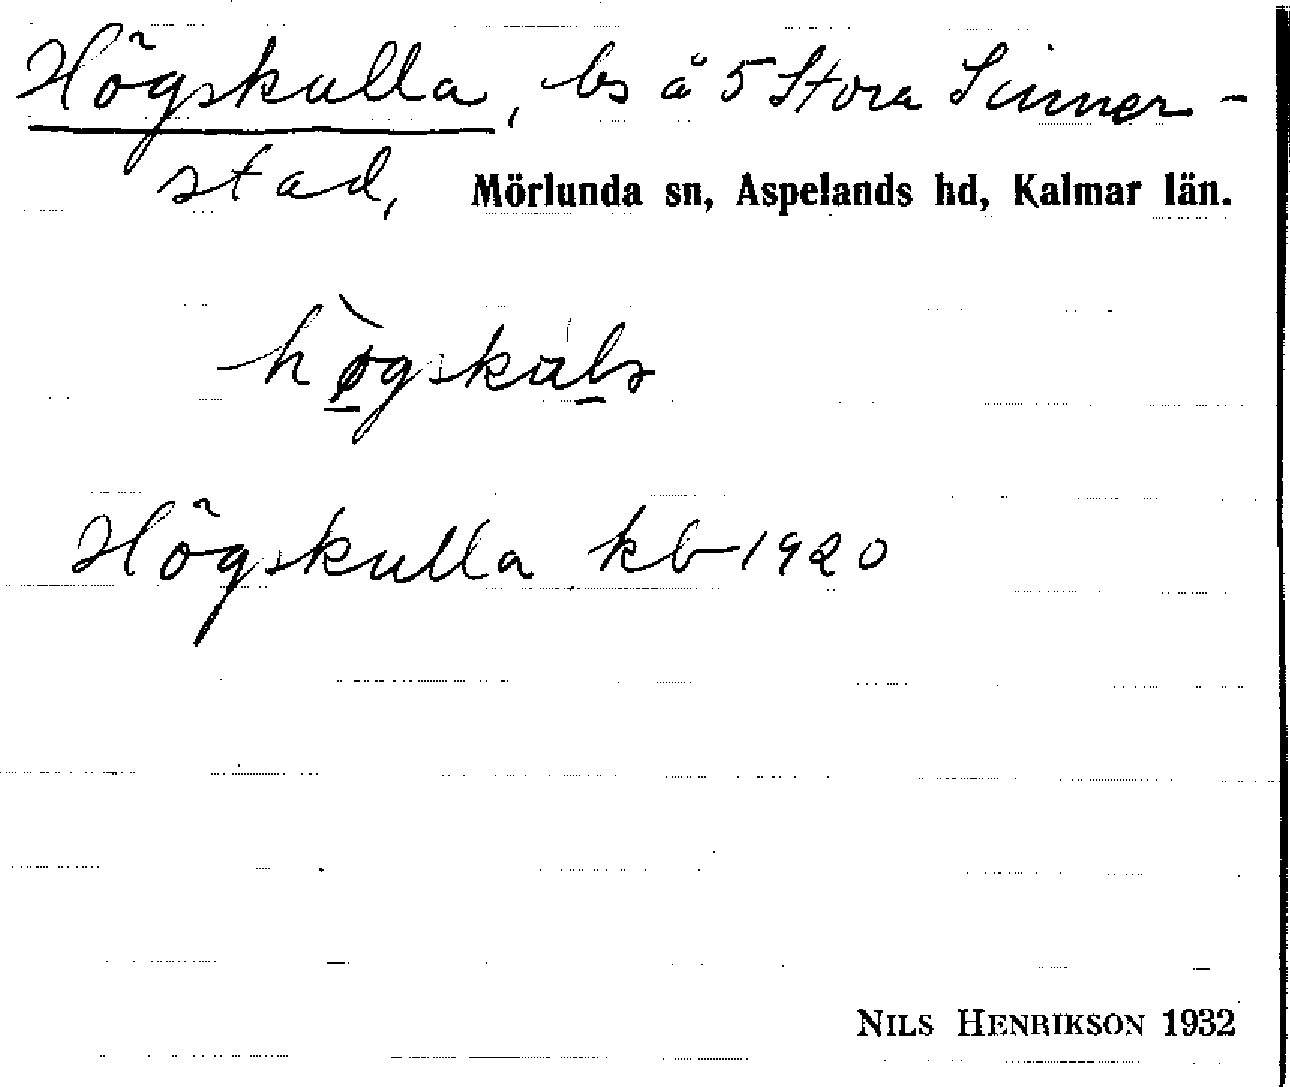 Högskulla, bs å 5 Stora Sinner-
stad, Mörlunda sn, Aspelands hd, Kalmar län.
Högskulla kb 1920
NILS HENRIKSON 1932